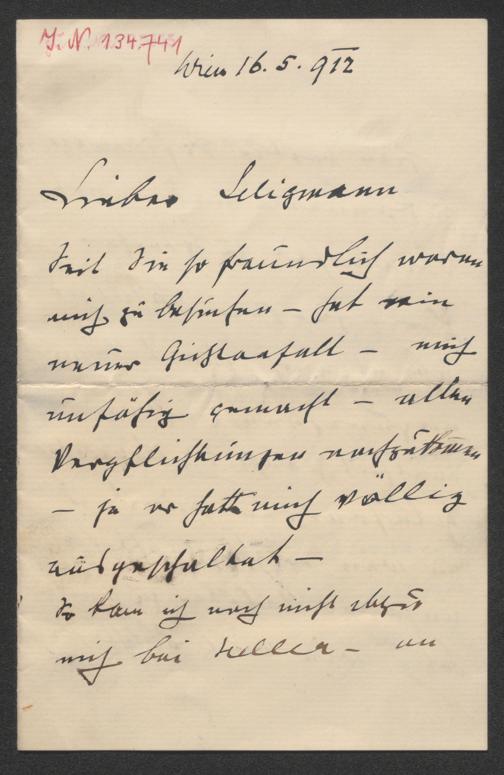 J. N. 134.741
Wien 16. 5. 912
Lieber Seligmann
Seit Sie so freundlich waren
mich zu besuchen – hat ein
neuer Gichtanfall – mich
unfähig gemacht – allen
Verpflichtungen nachzukommen
– ja er hatte mich völlig
ausgeschaltet –
So kam ich noch nicht dazu
mich bei Heller – an